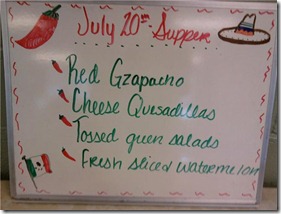 July 20th Supper
Red Gzapacho
Cheese Quesadillas
Tossed green salads
Fresh sliced watermelon